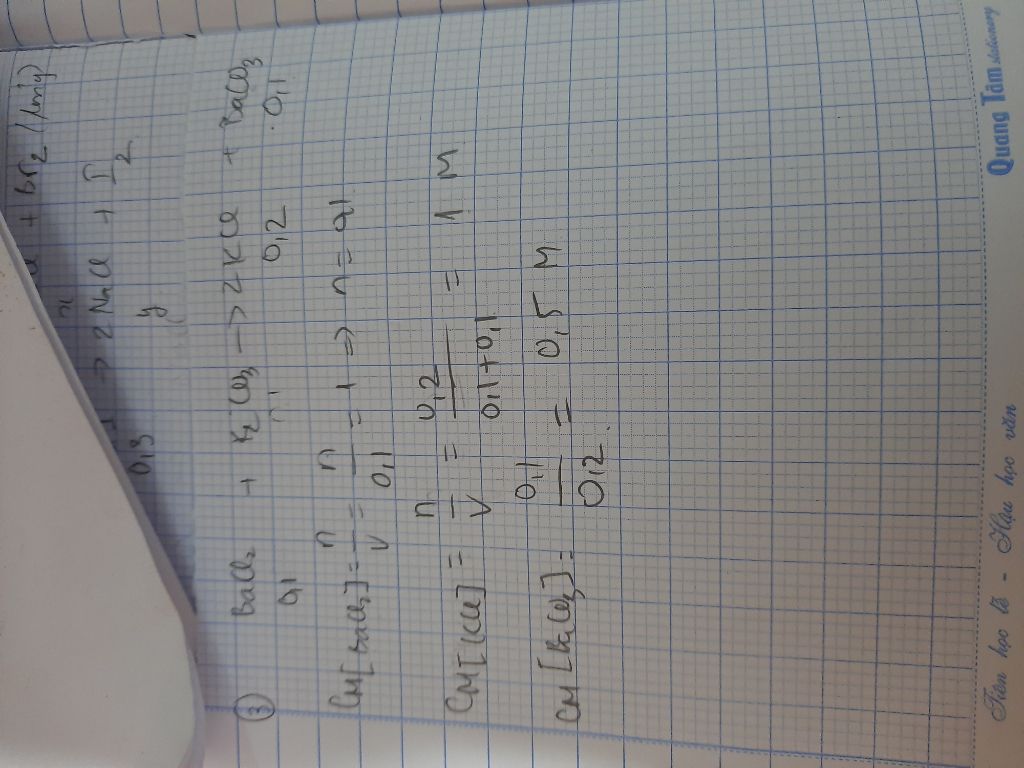 + Br2 (1miy)
→ 2NaCl + I2
0,3 y
③ BaCl2 + K2CO3 → 2KCl + BaCO3
0,1 0,1 0,2 0,1
CM[BaCl2] = n/V = n/0,1 = 1 => n = 0,1
CM[KCl] = n/V = 0,2/0,1+0,1 = 1 M
CM[BaCO3] = 0,1/0,2 = 0,5 M
Tiên học lễ - Hậu học văn
Quang Tam stationery